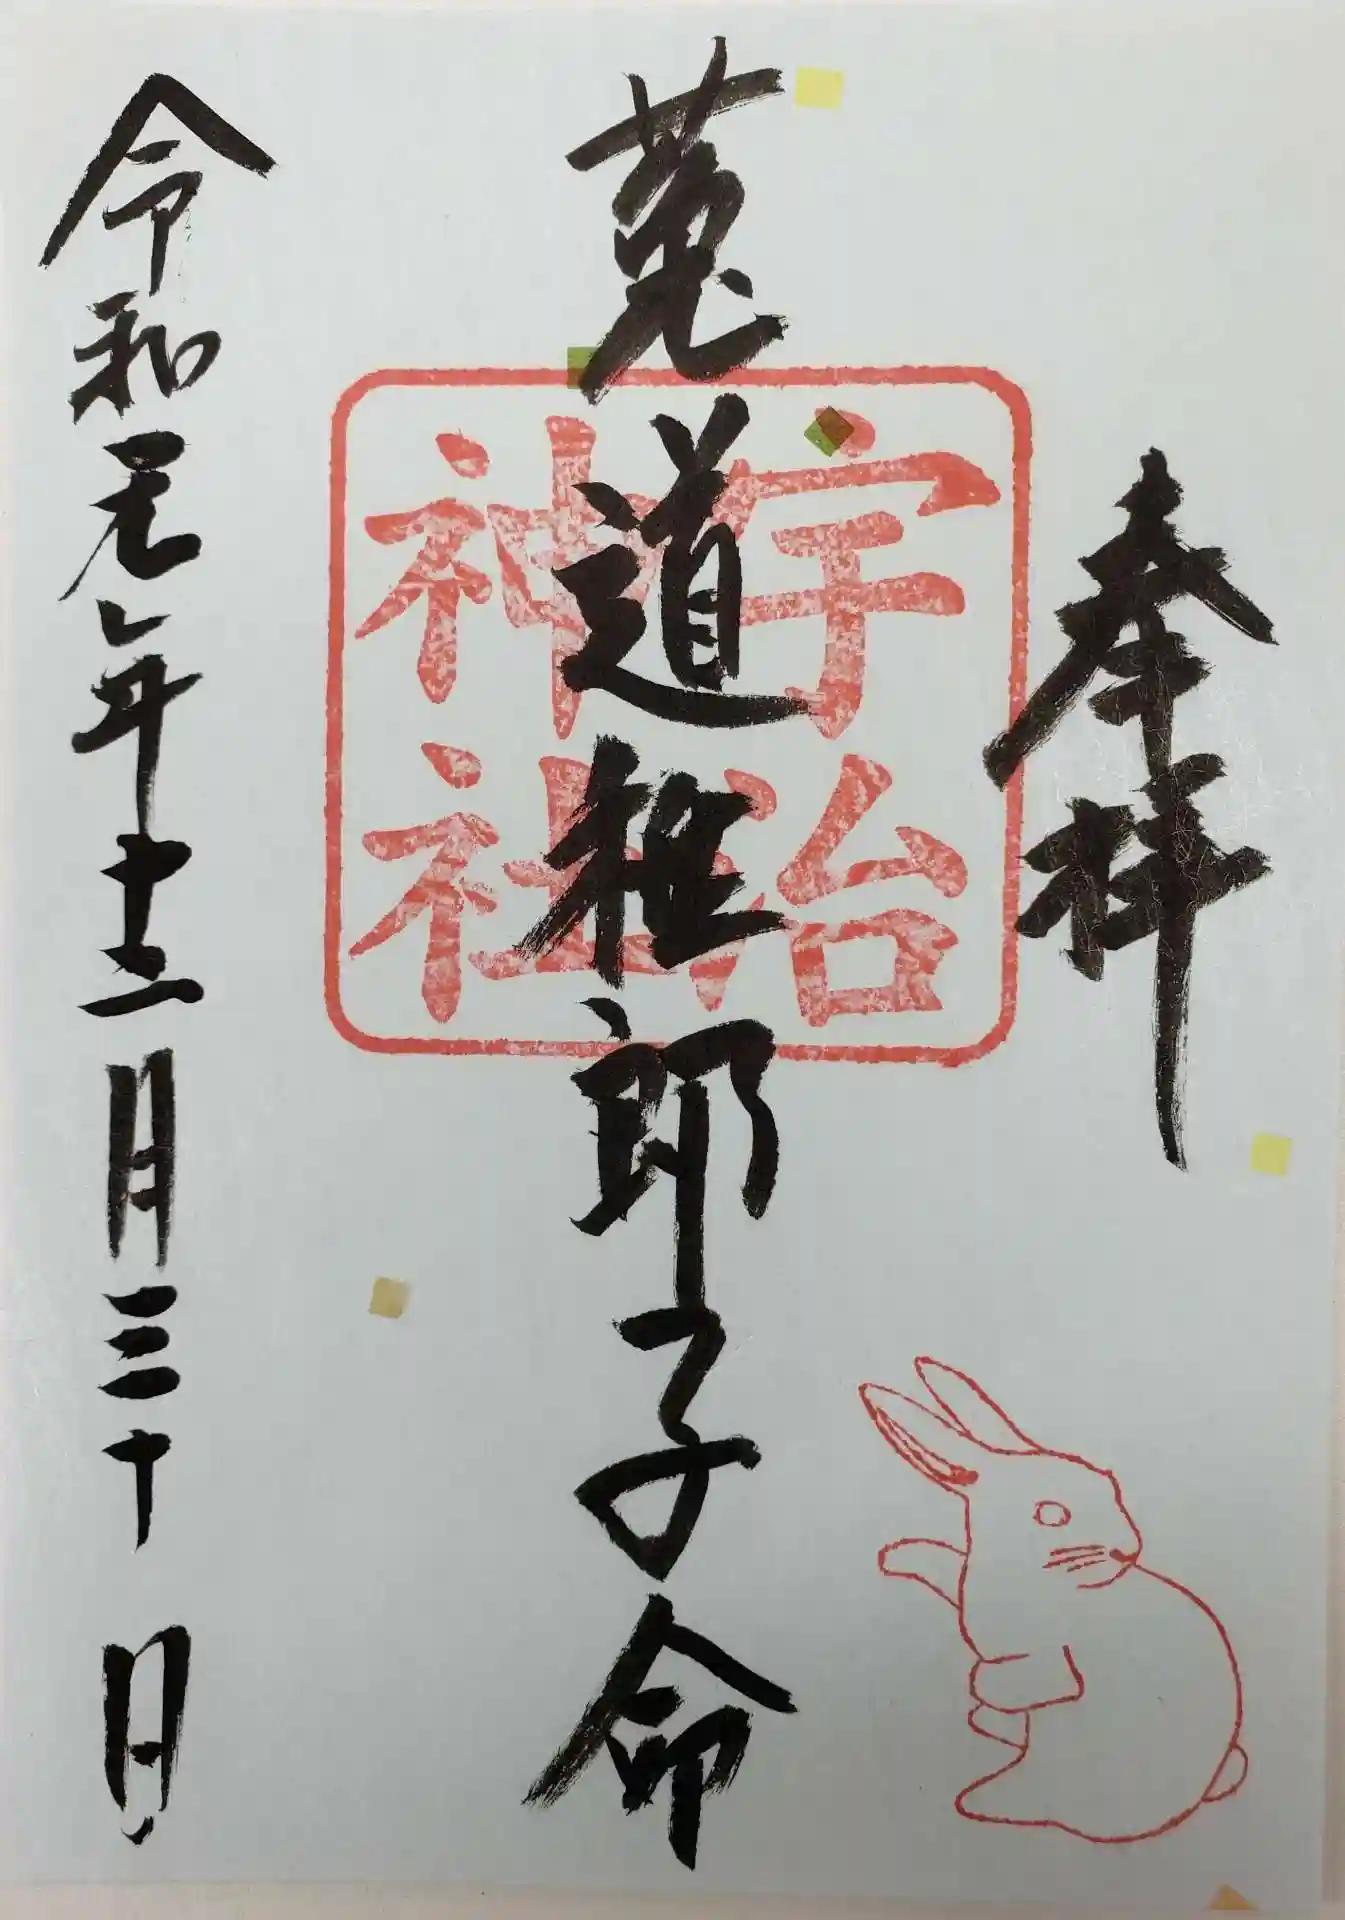 奉拝
菟道稚郎子命
宇治
神社
令和元年十二月三十日